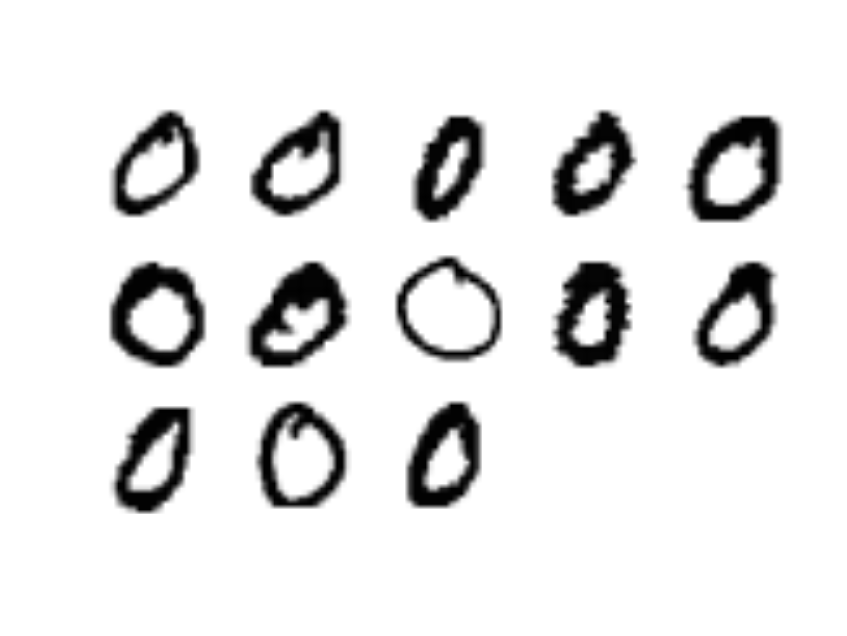 0 0 0 0 0
0 0 0 0 0
0 0 0